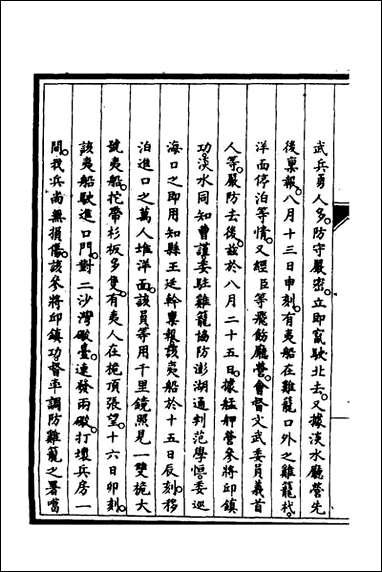 武兵勇人多。防守嚴密。立即竄駛北去。又據淡水廳營先
後稟報。八月十三日申刻。有夷船在雞籠口外之雞籠杙
洋面停泊等情。又經臣等飛飭廳營。會督文武委員義首
人等。嚴防去後。茲於八月二十五日。據艋舺營參將邱鎮
功淡水同知曹謹委駐雞籠協防澎湖通判范學恒。委巡
海口之即用知縣王廷幹稟報。該夷船於十五日辰刻。移
泊進口之萬人堆洋面。該員等用千里鏡照見一雙桅大
號夷船。拕帶杉板多隻。有夷人在桅頂張望。十六日卯刻。
該夷船駛進口門。對二沙灣礮臺。連發兩礮。打壞兵房一
間。我兵尚無損傷。該參將邱鎮功。督平調防雞籠之署噶